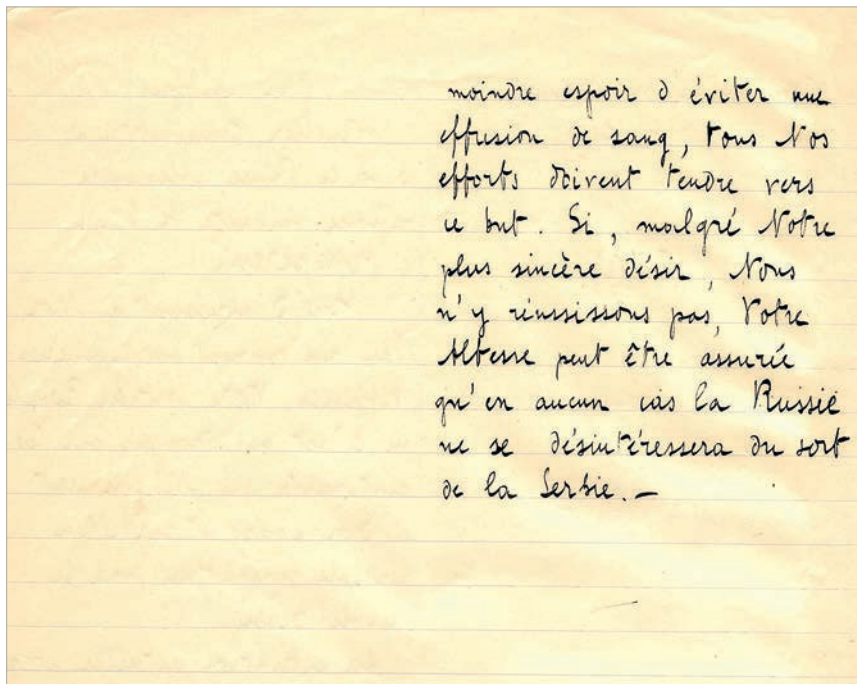 moindre espoir d'éviter une
effusion de sang, tous Nos
efforts doivent tendre vers
ce but. Si, malgré Notre
plus sincère désir, Nous
n'y réussissons pas, Votre
Altesse peut être assurée
qu'en aucun cas la Russie
ne se désintéressera du sort
de la Serbie. —